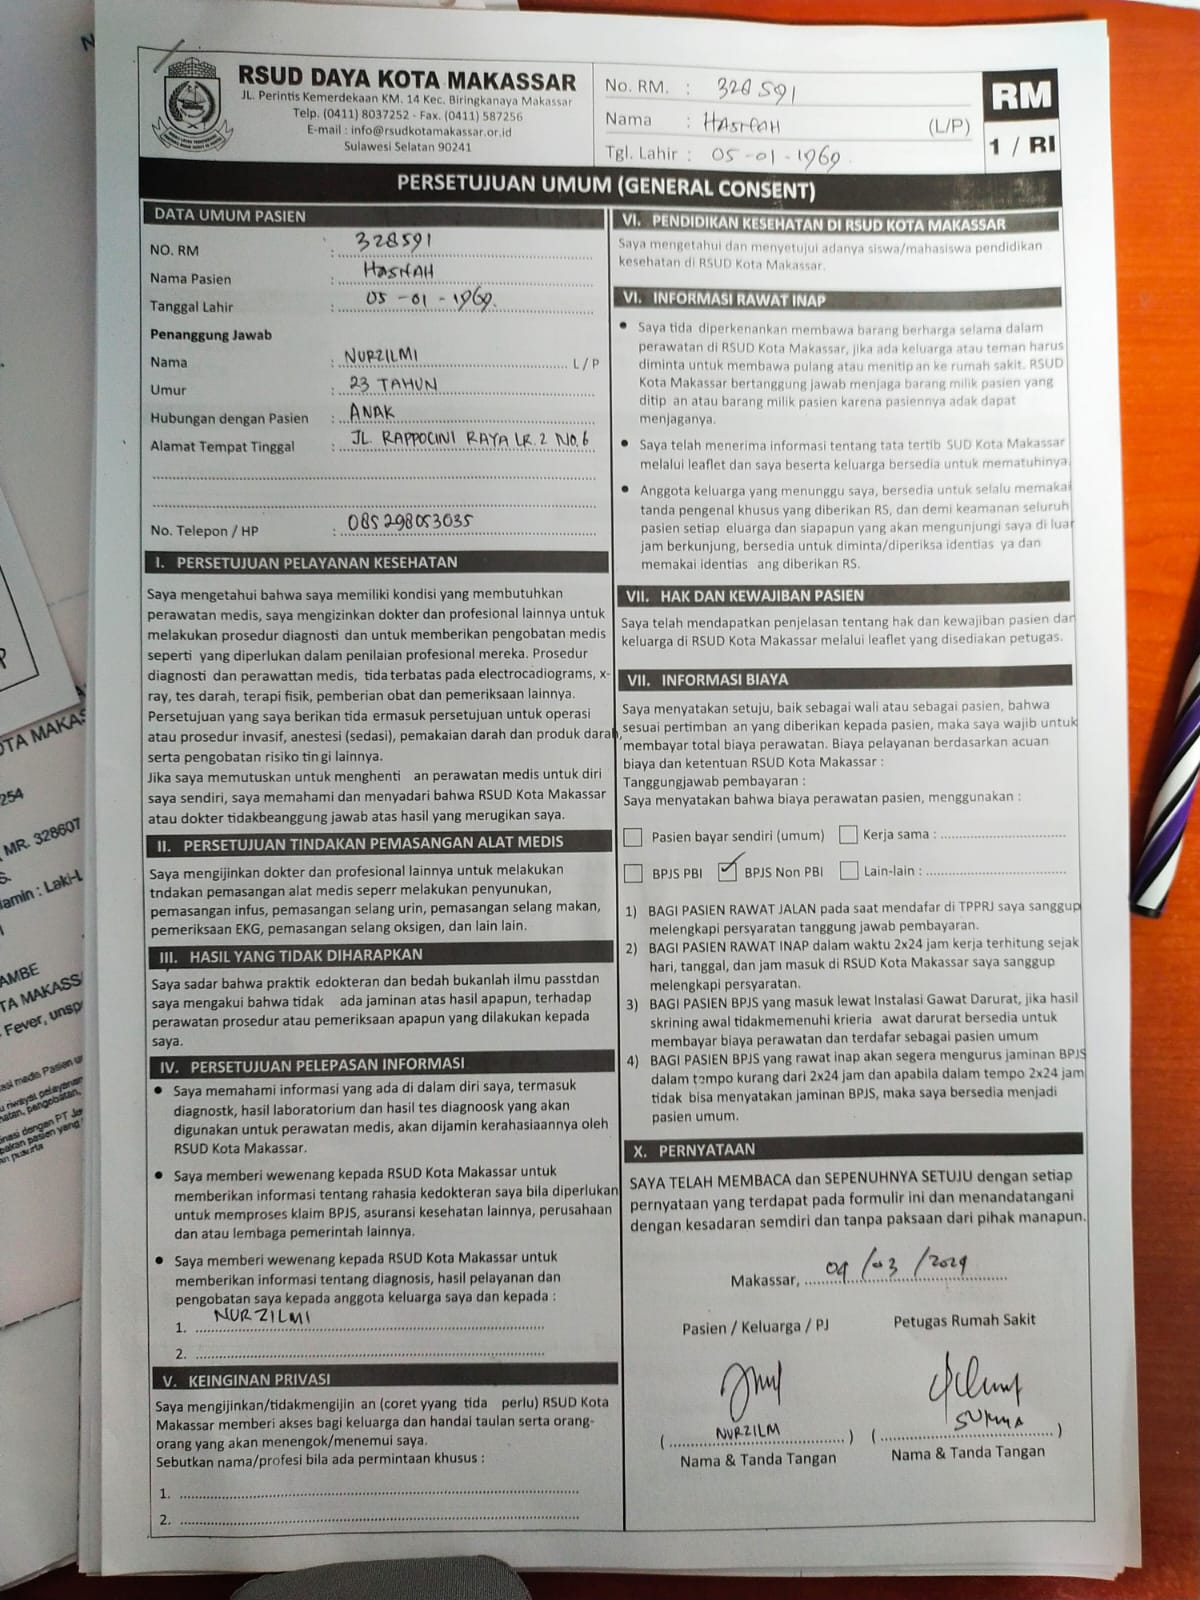 RSUD DAYA KOTA MAKASSAR
JL. Perintis Kemerdekaan KM. 14 Kec. Biringkanaya Makassar
Telp. (0411) 8037252 - Fax. (0411) 587256
E-mail : info@rsudkotamakassar.or.id
Sulawesi Selatan 90241
No. RM. : 328591
Nama : HASNAH (L/P)
Tgl. Lahir : 05-01-1969
RM
1 / RI
PERSETUJUAN UMUM (GENERAL CONSENT)
DATA UMUM PASIEN
NO. RM : 328591
Nama Pasien : HASNAH
Tanggal Lahir : 05-01-1969.
Penanggung Jawab
Nama : NURZILMI L / P
Umur : 23 TAHUN
Hubungan dengan Pasien : ANAK
Alamat Tempat Tinggal : JL. RAPPOCINI RAYA LR. 2 NO. 6
No. Telepon / HP : 085298053035
I. PERSETUJUAN PELAYANAN KESEHATAN
Saya mengetahui bahwa saya memiliki kondisi yang membutuhkan
perawatan medis, saya mengizinkan dokter dan profesional lainnya untuk
melakukan prosedur diagnosti dan untuk memberikan pengobatan medis
seperti yang diperlukan dalam penilaian profesional mereka. Prosedur
diagnosti dan perawattan medis, tida terbatas pada electrocadiograms, x-
ray, tes darah, terapi fisik, pemberian obat dan pemeriksaan lainnya.
Persetujuan yang saya berikan tida ermasuk persetujuan untuk operasi
atau prosedur invasif, anestesi (sedasi), pemakaian darah dan produk darah,
serta pengobatan risiko tin gi lainnya.
Jika saya memutuskan untuk menghenti an perawatan medis untuk diri
saya sendiri, saya memahami dan menyadari bahwa RSUD Kota Makassar
atau dokter tidakbeanggung jawab atas hasil yang merugikan saya.
II. PERSETUJUAN TINDAKAN PEMASANGAN ALAT MEDIS
Saya mengijinkan dokter dan profesional lainnya untuk melakukan
tndakan pemasangan alat medis seperr melakukan penyunukan,
pemasangan infus, pemasangan selang urin, pemasangan selang makan,
pemeriksaan EKG, pemasangan selang oksigen, dan lain lain.
III. HASIL YANG TIDAK DIHARAPKAN
Saya sadar bahwa praktik edokteran dan bedah bukanlah ilmu passtdan
saya mengakui bahwa tidak ada jaminan atas hasil apapun, terhadap
perawatan prosedur atau pemeriksaan apapun yang dilakukan kepada
saya.
IV. PERSETUJUAN PELEPASAN INFORMASI
• Saya memahami informasi yang ada di dalam diri saya, termasuk
diagnostk, hasil laboratorium dan hasil tes diagnoosk yang akan
digunakan untuk perawatan medis, akan dijamin kerahasiaannya oleh
RSUD Kota Makassar.
• Saya memberi wewenang kepada RSUD Kota Makassar untuk
memberikan informasi tentang rahasia kedokteran saya bila diperlukan
untuk memproses klaim BPJS, asuransi kesehatan lainnya, perusahaan
dan atau lembaga pemerintah lainnya.
• Saya memberi wewenang kepada RSUD Kota Makassar untuk
memberikan informasi tentang diagnosis, hasil pelayanan dan
pengobatan saya kepada anggota keluarga saya dan kepada :
1. NURZILMI
2.
V. KEINGINAN PRIVASI
Saya mengijinkan/tidakmengijin an (coret yyang tida perlu) RSUD Kota
Makassar memberi akses bagi keluarga dan handai taulan serta orang-
orang yang akan menengok/menemui saya.
Sebutkan nama/profesi bila ada permintaan khusus :
1.
2.
VI. PENDIDIKAN KESEHATAN DI RSUD KOTA MAKASSAR
Saya mengetahui dan menyetujui adanya siswa/mahasiswa pendidikan
kesehatan di RSUD Kota Makassar.
VI. INFORMASI RAWAT INAP
• Saya tida diperkenankan membawa barang berharga selama dalam
perawatan di RSUD Kota Makassar, jika ada keluarga atau teman harus
diminta untuk membawa pulang atau menitip an ke rumah sakit. RSUD
Kota Makassar bertanggung jawab menjaga barang milik pasien yang
ditip an atau barang milik pasien karena pasiennya adak dapat
menjaganya.
• Saya telah menerima informasi tentang tata tertib SUD Kota Makassar
melalui leaflet dan saya beserta keluarga bersedia untuk mematuhinya.
• Anggota keluarga yang menunggu saya, bersedia untuk selalu memakai
tanda pengenal khusus yang diberikan RS, dan demi keamanan seluruh
pasien setiap eluarga dan siapapun yang akan mengunjungi saya di luar
jam berkunjung, bersedia untuk diminta/diperiksa identias ya dan
memakai identias ang diberikan RS.
VII. HAK DAN KEWAJIBAN PASIEN
Saya telah mendapatkan penjelasan tentang hak dan kewajiban pasien dar
keluarga di RSUD Kota Makassar melalui leaflet yang disediakan petugas.
VII. INFORMASI BIAYA
Saya menyatakan setuju, baik sebagai wali atau sebagai pasien, bahwa
sesuai pertimban an yang diberikan kepada pasien, maka saya wajib untuk
membayar total biaya perawatan. Biaya pelayanan berdasarkan acuan
biaya dan ketentuan RSUD Kota Makassar :
Tanggungjawab pembayaran :
Saya menyatakan bahwa biaya perawatan pasien, menggunakan :
Pasien bayar sendiri (umum) Kerja sama :
BPJS PBI ✓ BPJS Non PBI Lain-lain :
1) BAGI PASIEN RAWAT JALAN pada saat mendafar di TPPRJ saya sanggup
melengkapi persyaratan tanggung jawab pembayaran.
2) BAGI PASIEN RAWAT INAP dalam waktu 2x24 jam kerja terhitung sejak
hari, tanggal, dan jam masuk di RSUD Kota Makassar saya sanggup
melengkapi persyaratan.
3) BAGI PASIEN BPJS yang masuk lewat Instalasi Gawat Darurat, jika hasil
skrining awal tidakmemenuhi krieria awat darurat bersedia untuk
membayar biaya perawatan dan terdafar sebagai pasien umum
4) BAGI PASIEN BPJS yang rawat inap akan segera mengurus jaminan BPJS
dalam tempo kurang dari 2x24 jam dan apabila dalam tempo 2x24 jam
tidak bisa menyatakan jaminan BPJS, maka saya bersedia menjadi
pasien umum.
X. PERNYATAAN
SAYA TELAH MEMBACA dan SEPENUHNYA SETUJU dengan setiap
pernyataan yang terdapat pada formulir ini dan menandatangani
dengan kesadaran semdiri dan tanpa paksaan dari pihak manapun.
Makassar, 09/03/2024
Pasien / Keluarga / PJ Petugas Rumah Sakit
(NURZILM) (SUKMA)
Nama & Tanda Tangan Nama & Tanda Tangan
OTA MAKAS
254
MR. 328607
amin : Laki-L
AMBE
TA MAKASS
Fever, unsp